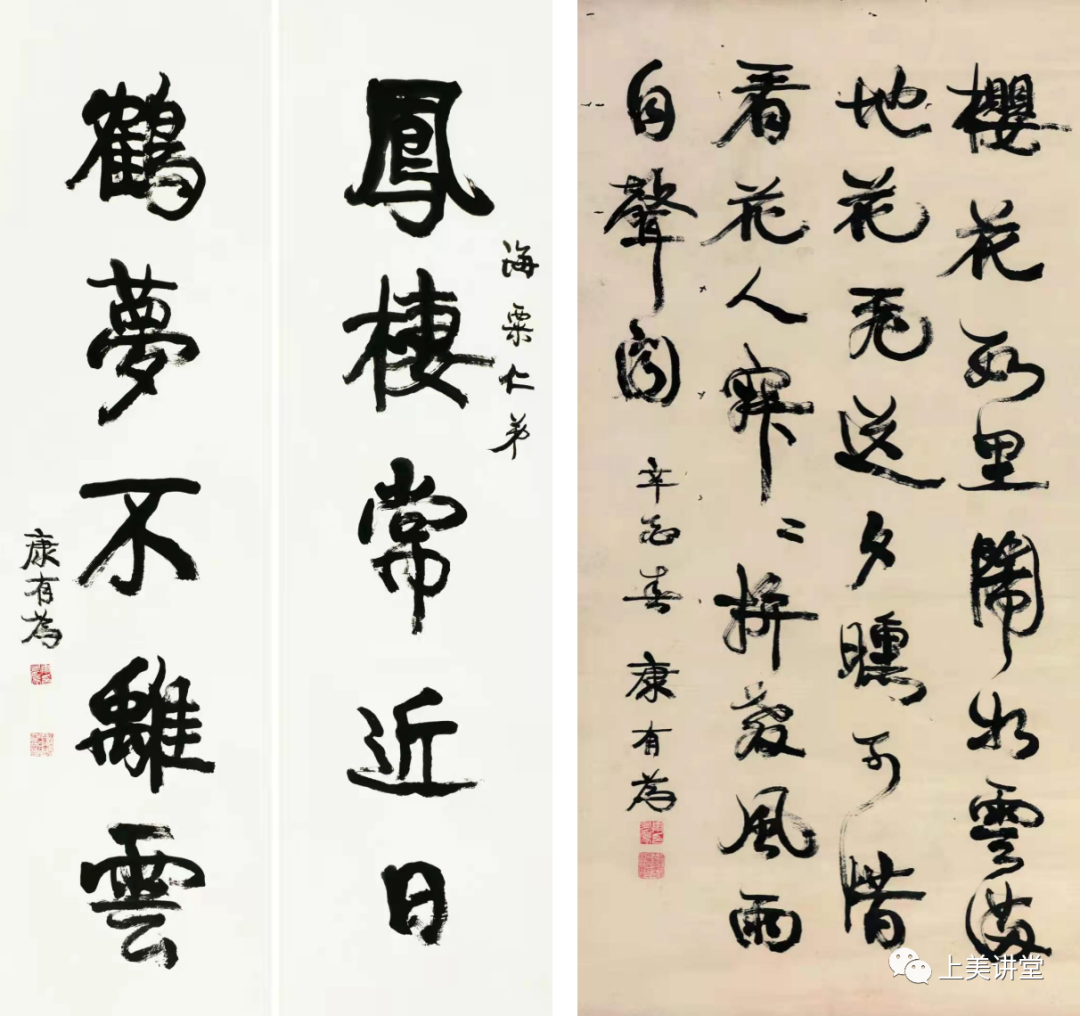 海粟仁弟
鳳棲常近日
鶴夢不離雲
康有為
櫻花里鬧雲滿
地花送夕曛可惜
看花人寂〻拚風雨
自聲聞
辛春 康有為
上美讲堂